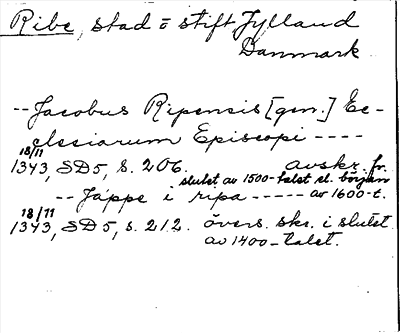 Ribe, stad o stift Jylland
Danmark
-- Jacobus Ripensis [gen.] Ec-
clesiarum Episcopi ----
18/11
1343, SD5, s. 206. avskr. fr.
slutet av 1500-talet el. början
-- Jäppe i ripa ----- av 1600-t.
18/11
1343, SD5, s. 212. övers. skr. i slutet
av 1400-talet.